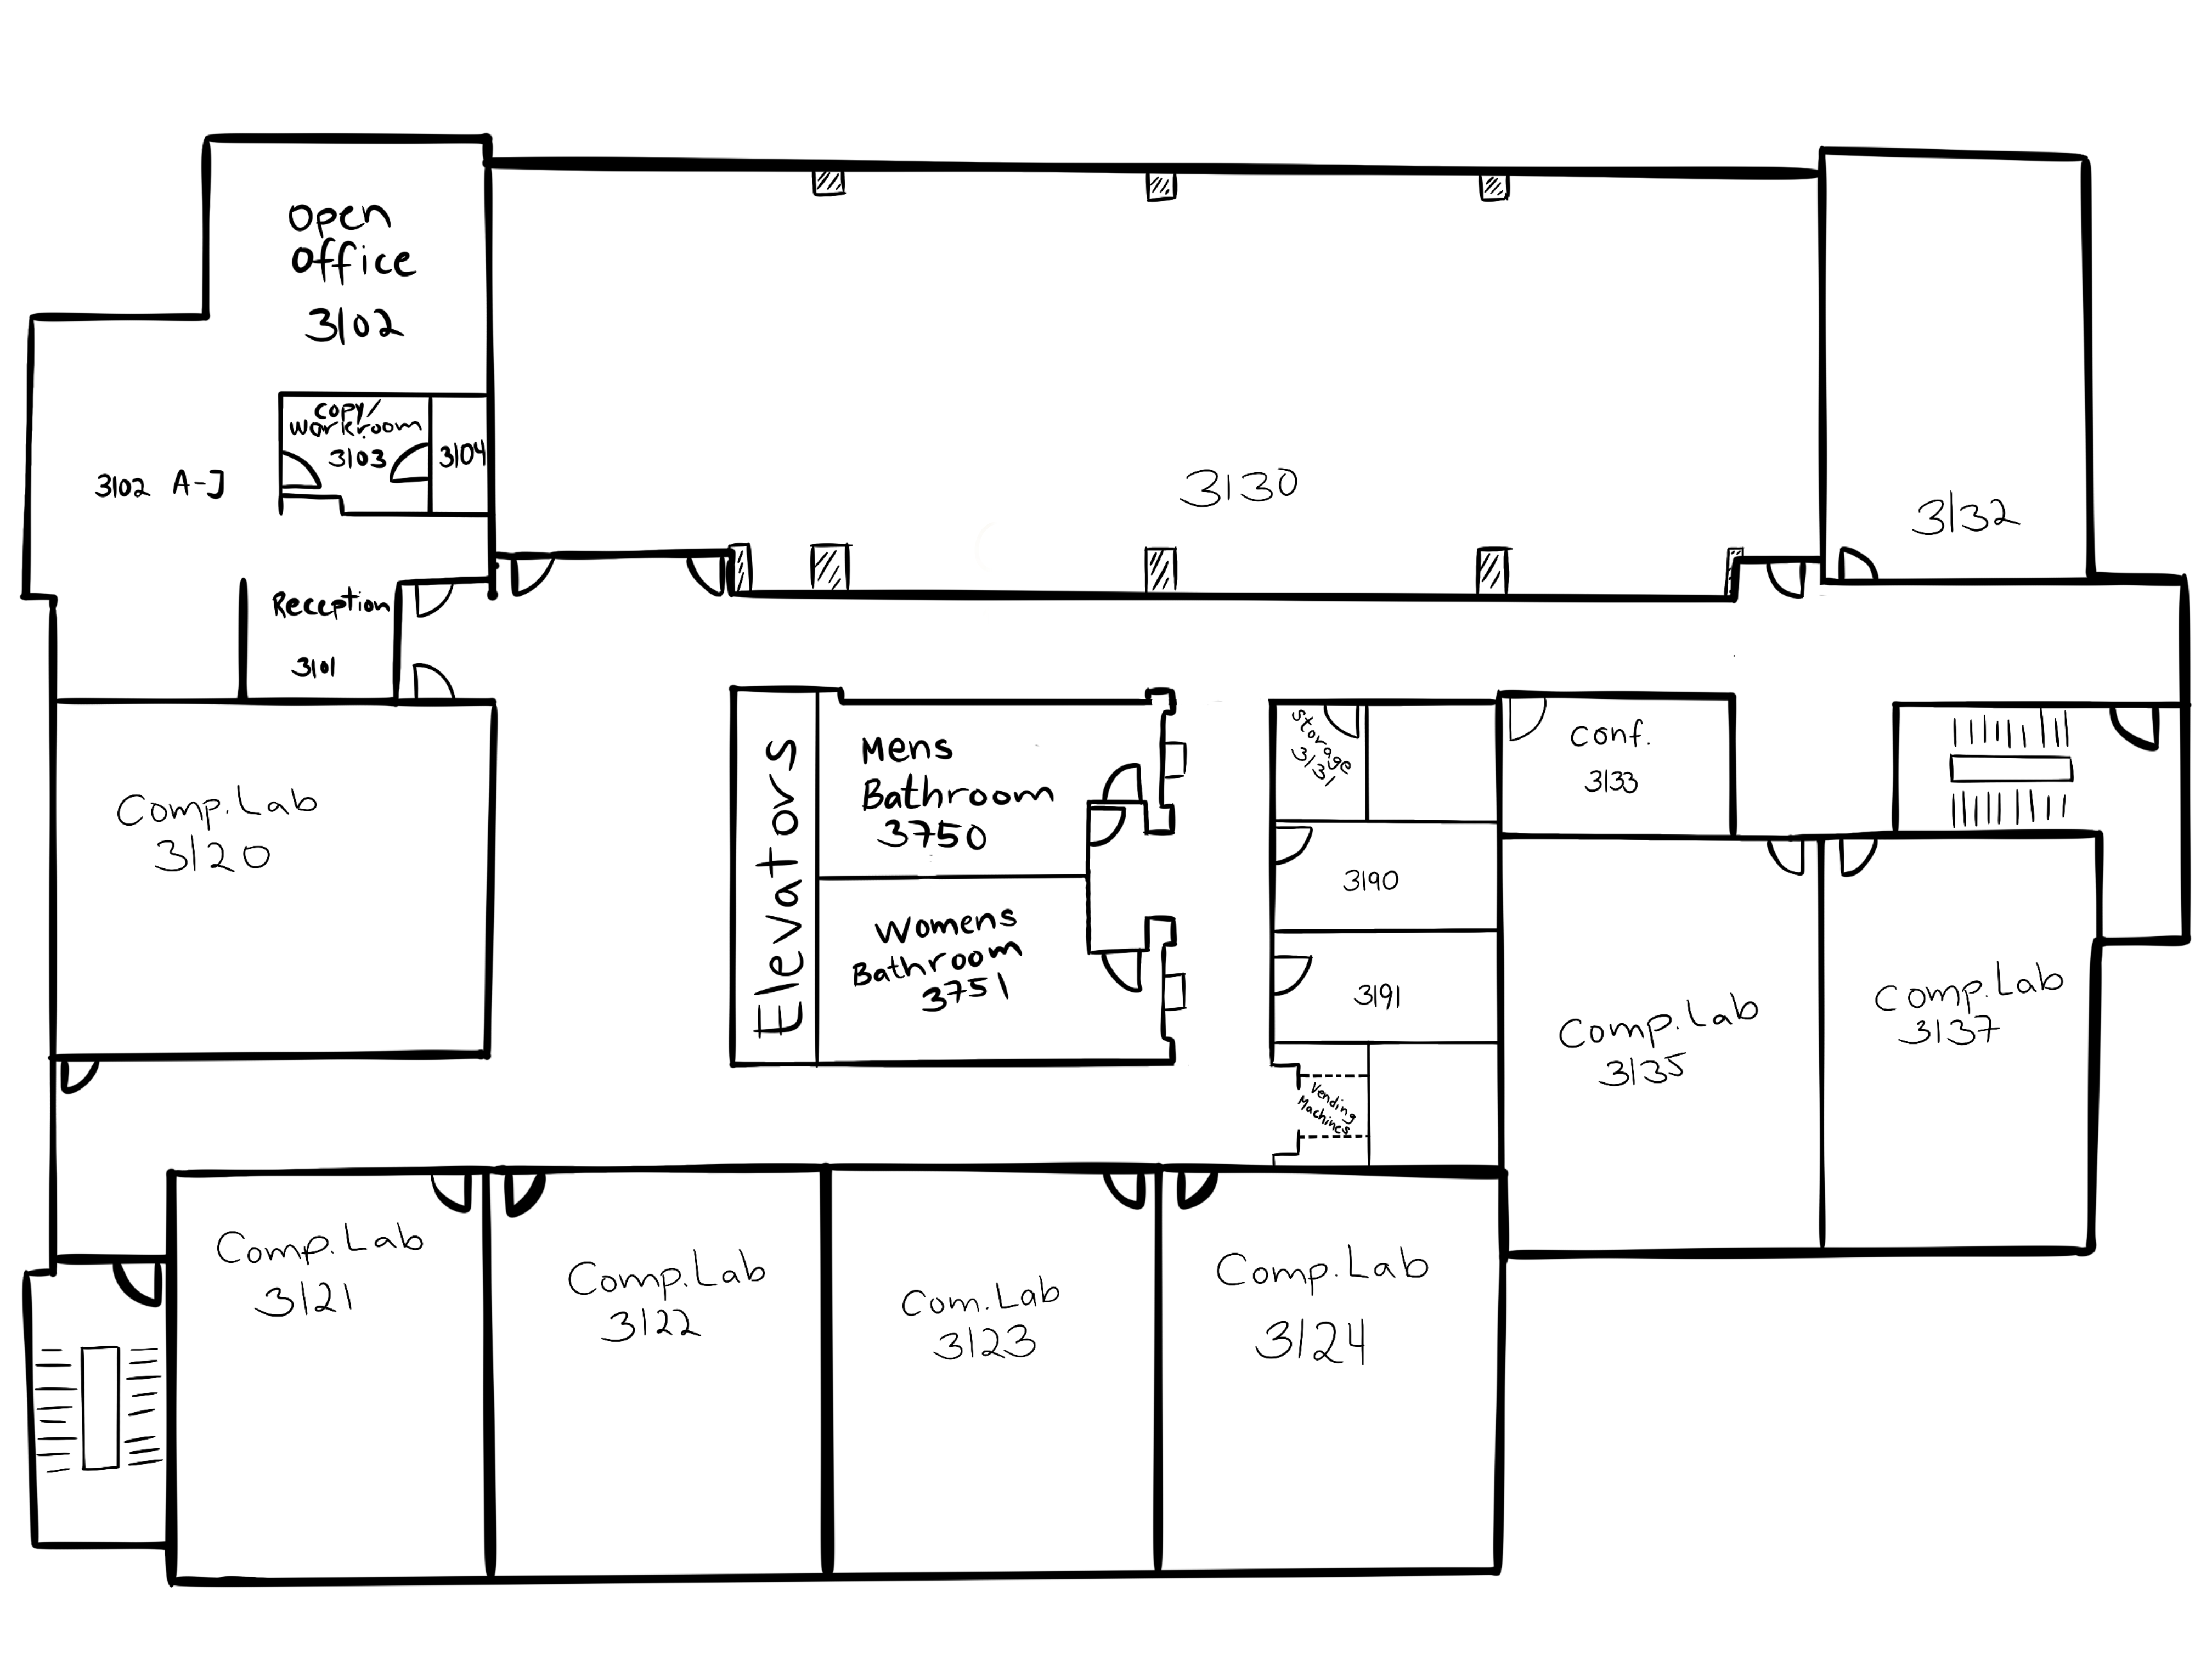 Open
Office
3102
Copy/
Workroom
3103
3104
3102 A-J
3130
3132
Reception
3101
Comp. Lab
3120
Elevators
Mens
Bathroom
3750
Womens
Bathroom
3751
Storage
3131
Conf.
3133
3190
3191
Vending
Machines
Comp. Lab
3135
Comp. Lab
3137
Comp. Lab
3121
Comp. Lab
3122
Com. Lab
3123
Comp. Lab
3124